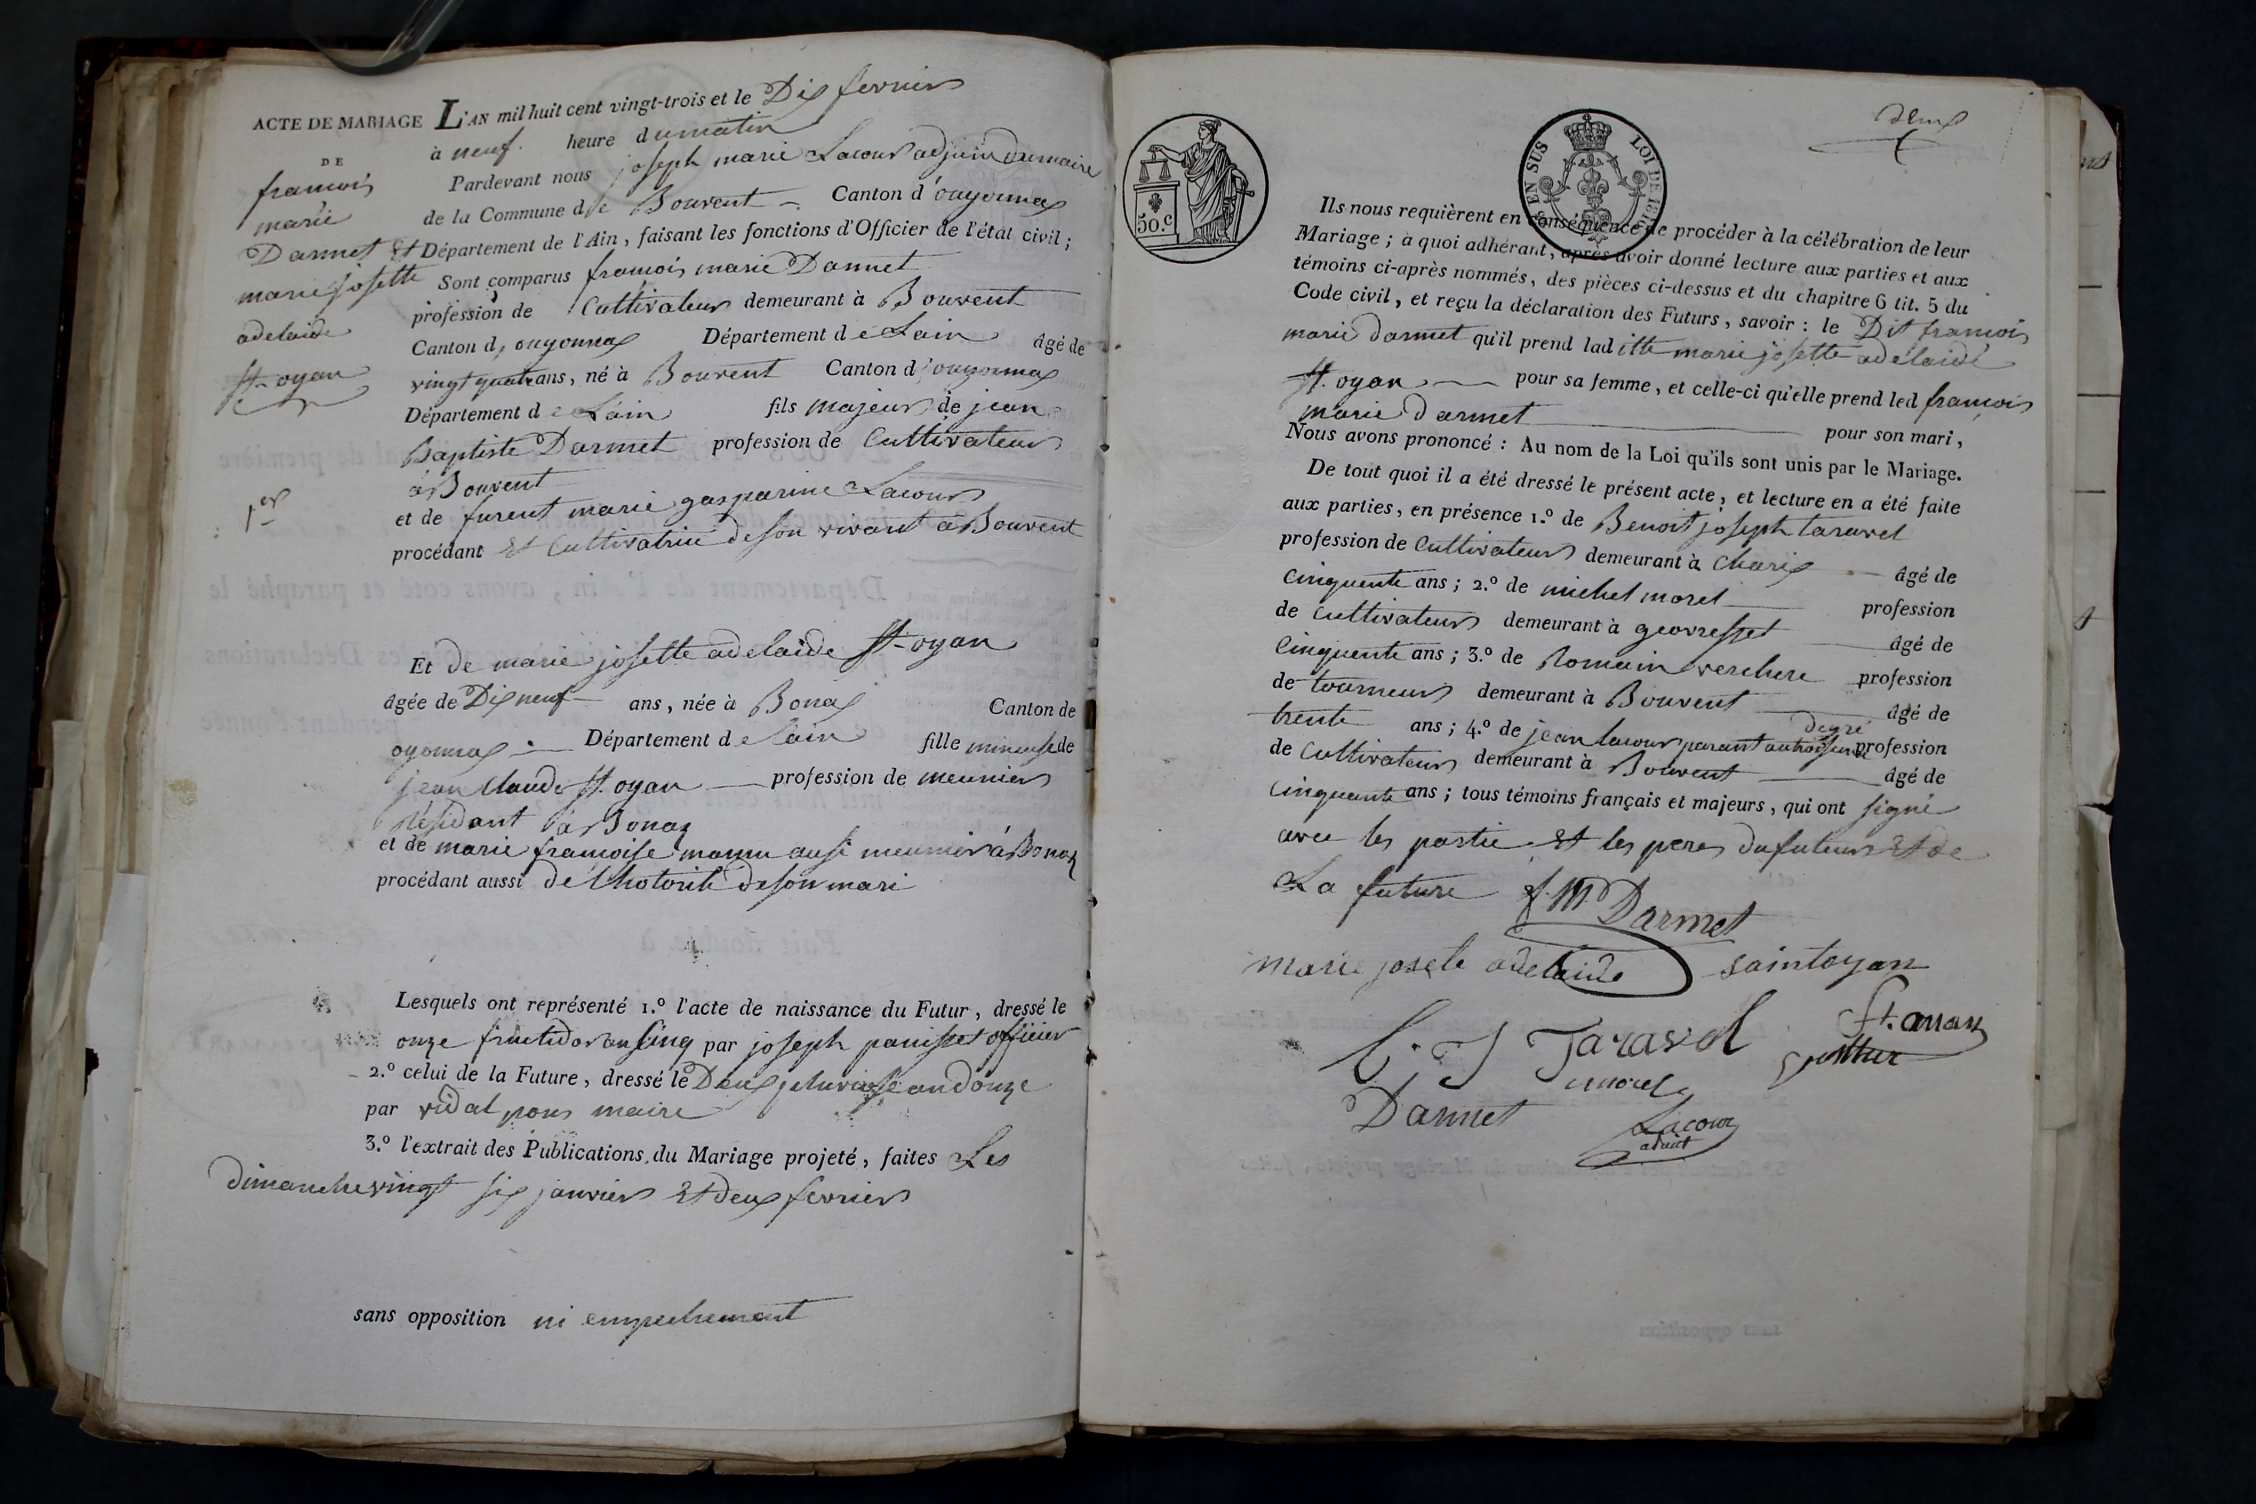 ACTE DE MARIAGE
DE
francois
marie
Darmet Et
marie josette
adelaide
St. oyan
1er
L'AN mil huit cent vingt-trois et le Dix fevrier
à neuf heure du matin
Pardevant nous joseph marie Lacour adjoin du maire
de la Commune de Bouvent Canton d'ouyonnax
Département de l'Ain, faisant les fonctions d'Officier de l'état civil;
Sont comparus francois marie Darmet
profession de Cultivateur demeurant à Bouvent
Canton d, ouyonnax Département de Lain âgé de
vingt quatre ans, né à Bouvent Canton d'ouyonnax
Département de Lain fils majeur de jean
Baptiste Darmet profession de Cultivateur
à Bouvent
et de furent marie gasparine Lacour
procédant Et Cultivatrice de son vivant à Bouvent
Et de marie josette adelaide St. oyan
âgée de Dix neuf ans, née à Bonaz Canton de
oyonnax Département de Lain fille mineuse de
jean Claude St. oyan profession de meunier
Résidant à Bonaz
et de marie francoise aussi meunier à Bonaz
procédant aussi de Lhotorité de son mari
Lesquels ont représenté 1.º l'acte de naissance du Futur, dressé le
onze fructidor an Cinq par joseph panisset officier
2.º celui de la Future, dressé le Deux pluviose an douze
par vidal pour maire
3.º l'extrait des Publications, du Mariage projeté, faites Les
dimanche vingt six janvier Et deux fevrier
sans opposition ni empechement
deux
50.c
EN SUS
LOI DE 1816
Ils nous requièrent en conséquence de procéder à la célébration de leur
Mariage; à quoi adhérant, après avoir donné lecture aux parties et aux
témoins ci-après nommés, des pièces ci-dessus et du chapitre 6 tit. 5 du
Code civil, et reçu la déclaration des Futurs, savoir: le Dit francois
marie darmet qu'il prend laditte marie josette adelaide
St. oyan pour sa femme, et celle-ci qu'elle prend led francois
marie darmet pour son mari,
Nous avons prononcé: Au nom de la Loi qu'ils sont unis par le Mariage.
De tout quoi il a été dressé le présent acte, et lecture en a été faite
aux parties, en présence 1.º de Benoit joseph taravel
profession de Cultivateur demeurant à Charix âgé de
Cinquente ans; 2.º de michel morel profession
de Cultivateur demeurant à geovresset âgé de
Cinquente ans; 3.º de Romain verchere profession
de tourneur demeurant à Bouvent âgé de
degré
trente ans; 4.º de jean lacour parant au troisieme profession
de Cultivateur demeurant à Bouvent âgé de
Cinquante ans; tous témoins français et majeurs, qui ont signé
avec les partie Et les peres du futeur Et de
La future f. m Darmet
marie josete adelaide saintoyan
B. J Taravel
morel
Darmet
Lacour